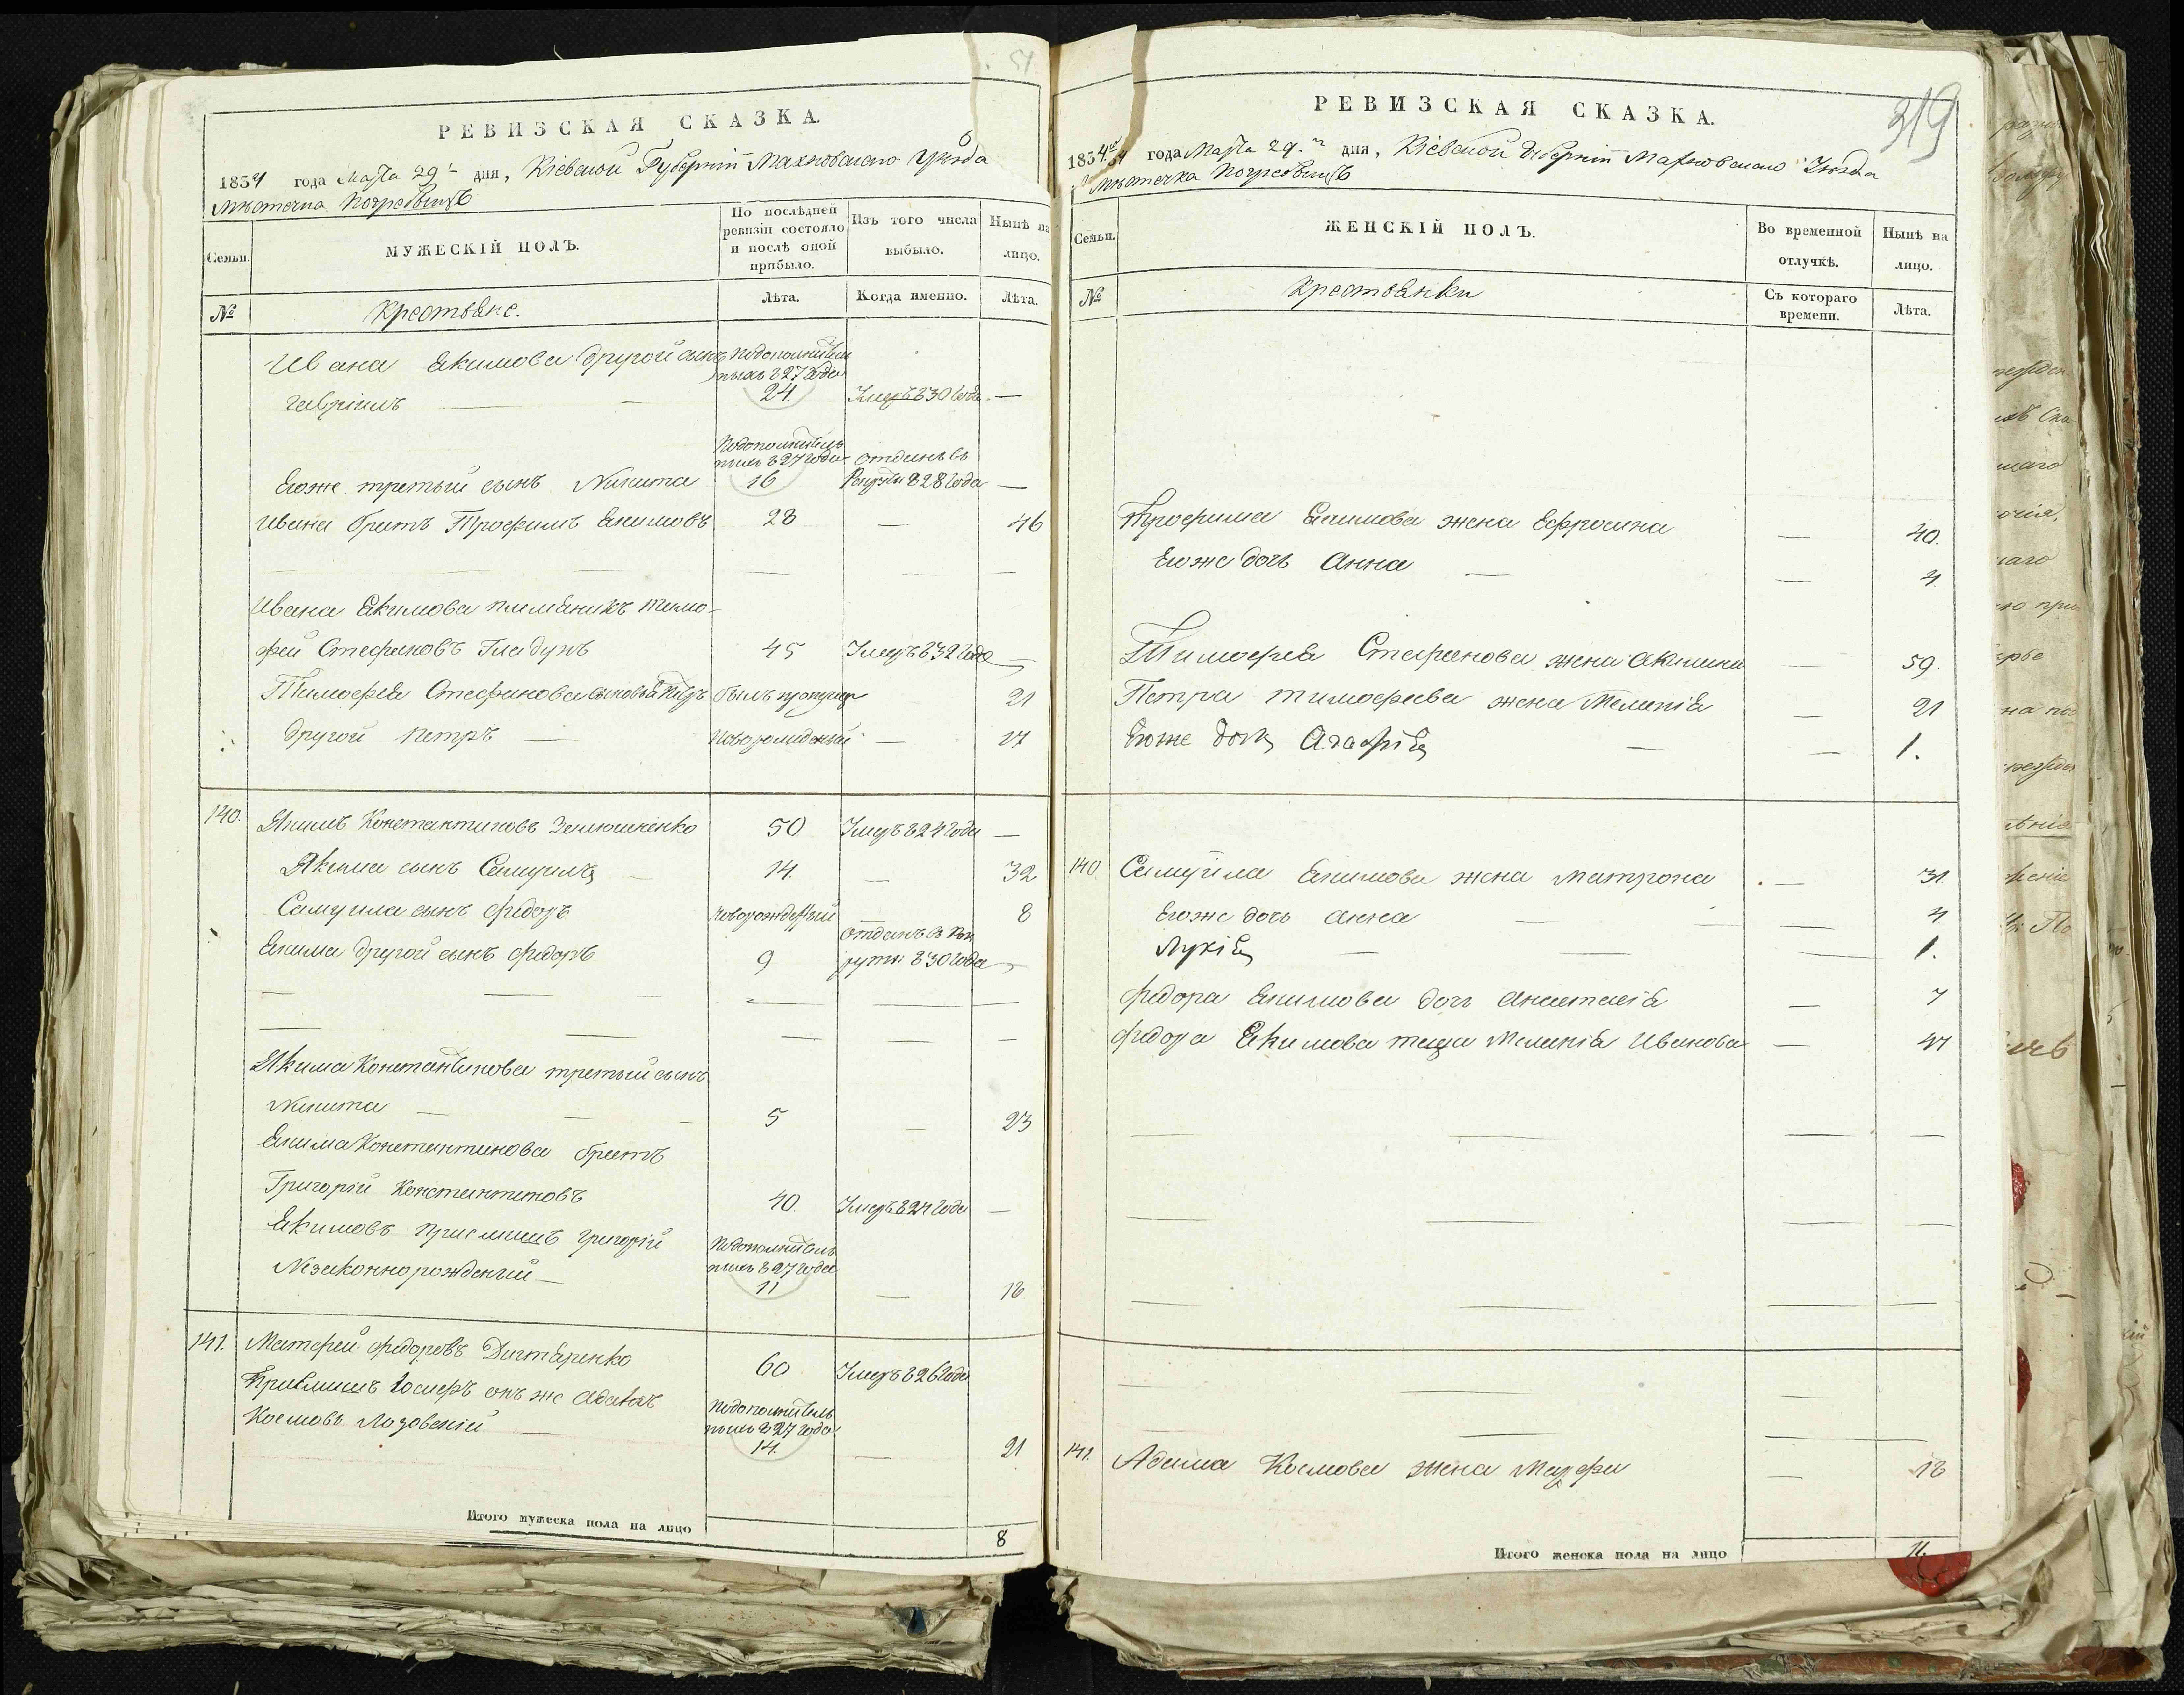 54
РЕВИЗСКАЯ СКАЗКА.
1834 года Марта 29 дня, Кіевской Губерніи Махновского Уезда
Местечка Погребищъ
Семьи.
МУЖЕСКІЙ ПОЛЪ.
По послѣдней ревизіи состояло и послѣ оной прибыло.
Изъ того числа выбыло.
Нынѣ на лицо.
№
Крестьяне.
Лѣта.
Когда именно.
Лѣта.
Ивана Екимова другой сынъ
Гаврiилъ — 827 года 24 Умеръ 830 года —
Егоже третый сынъ Никита 827 года 16 отданъ въ Рекруты 828 года —
Ивана братъ Трофимъ Екимовъ 28 — 46
Ивана Екимова племеникъ Тимо-
фей Стефановъ Гладунъ 45 Умеръ 832 года —
Тимофея Стефанова сыновья Петръ былъ 21
другой Петръ — Новорожденый — 17
140. Якимъ Константиновъ 50 Умеръ 824 года —
Якима сынъ Самуилъ — 14. — 32
Самуила сынъ Федоръ новорожденый 8
Екима другой сынъ Федоръ 9 отданъ в Рек
руты 830 года —
Якима Константинова третый сынъ
Никита — 5 — 23
Екима Константинова братъ
Григорій Константиновъ 40. Умеръ 824 года —
Екимовъ Григорій
Незаконнорожденый — 827 года 11 — 18
141. Матфей Федоровъ Дигтяренко 60 Умеръ 826 года
Іосифъ онъ же Адамъ
Космовъ Лозовскій — 827 года 14. — 21
Итого мужеска пола на лицо 8
319
РЕВИЗСКАЯ СКАЗКА.
1834 года Марта 29 дня, Кіевской Губерніи Махновского Уезда
Местечка Погребищъ
Семьи.
ЖЕНСКІЙ ПОЛЪ.
Во временной отлучкѣ.
Нынѣ на лицо.
№
Крестьянки
Съ котораго времени.
Лѣта.
Трофима Екимова жена Ефросина — 40.
Егоже дочь Анна — — 4.
Тимофея Стефанова жена Акилина — 59.
Петра Тимофеева жена Меланія — 21
Егоже дочь Агафія — — 1.
140 Самуила Екимова жена Матрона — 31
Егоже дочь Анна — — 4
Лукія — — — 1.
Федора Екимова дочь Анастасія — 7
Федора Екимова теща Меланія Иванова — 47
141. Адама Космова жена Марфа — 18
Итого женска пола на лицо 11.